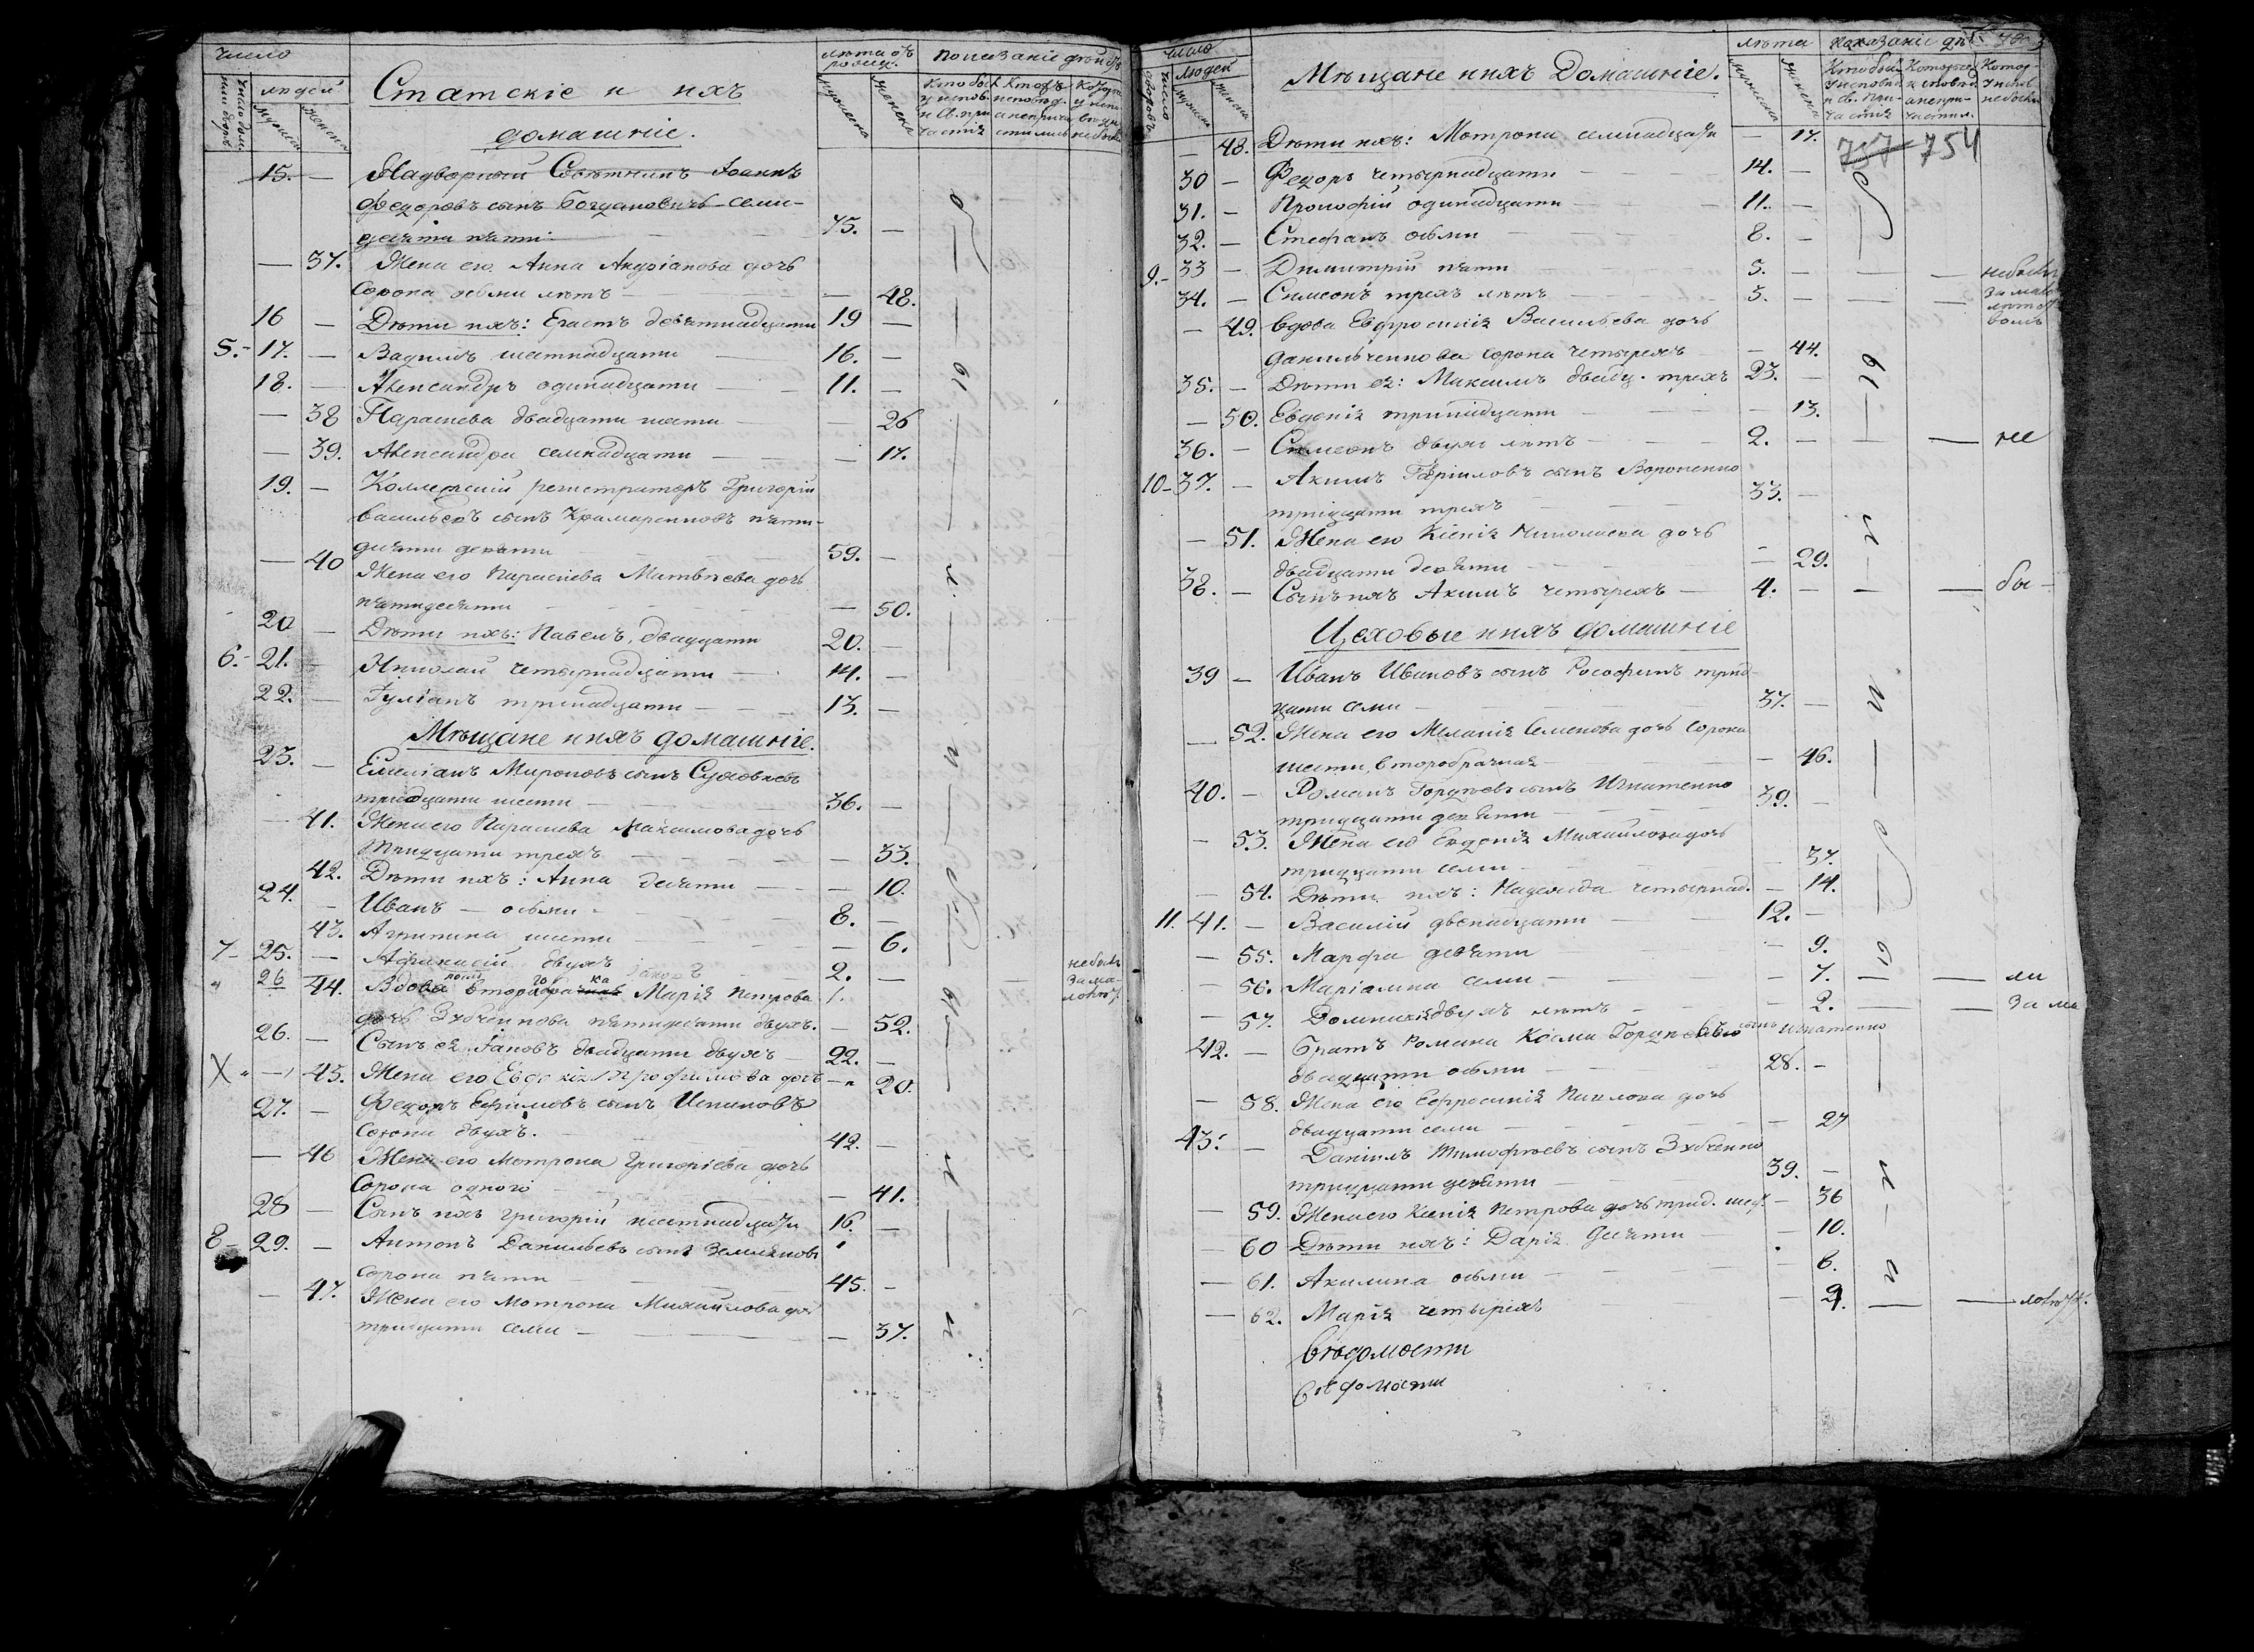 число
людей
Статскіе и ихъ
домашніе.
15. — Надворный Совѣтникъ Іоаннъ
Федоровъ сынъ Богдановичъ семи-
десяти пяти — 75. —
— 37. Жена его Анна Андріанова дочь
Сорока осьми лѣтъ — — 48.
16 — Дѣти ихъ: Ерастъ девятнадцати 19 —
5.- 17. — Вадимъ шестнадцати — 16. —
18. — Александръ одинадцати — 11. —
— 38 Параскева двадцати шести — — 26
— 39. Александра семнадцати — — 17.
19. — Коллежскій регистраторъ Григорій
Васильевъ сынъ Крамаренковъ пяти-
десяти девяти 59. —
— 40 Жена его Параскева Матвѣева дочь
пятидесяти — — 50.
20 — Дѣти ихъ: Павелъ, двадцати 20. —
6.- 21. — Николай четырнадцати — 14. —
22. — Іуліанъ тринадцати — 13. —
Мѣщане и ихъ домашніе.
23. — Емеліанъ Мироновъ сынъ
тридцати шести — 36. —
— 41. Жена его Параскева Максимова дочь
тридцати трехъ — — 33.
42. Дѣти ихъ: Анна десяти — — 10.
24. — Иванъ — осьми — 8. —
43. Агрипина шести — — 6.
7- 25. — Афанасій двухъ 2. —
26 44. Вдова Марія Петрова 1.
дочь Зубченкова пятидесяти двухъ. — 52.
26. — Сынъ ея Іаковъ двадцати двухъ — 22. —
X — 45. Жена его Евдокія Трофимова дочь — 20.
27. — Федоръ Ефимовъ сынъ
Сорока двухъ. 42. —
— 46 Жена его Мотрона Григоріева дочь
Сорока одного — — 41.
28 — Сынъ ихъ Григорій шестнадцати 16. —
8- 29. — Антонъ Данильевъ сынъ Земляновъ
сорока пяти — 45. —
— 47. Жена его Мотрона Михайлова доч
тридцати семи — — 37.
число
людей
Мѣщане и ихъ Домашніе.
лѣта показаніе
757 754
— 48. Дѣти ихъ: Мотрона семнадцати — 17.
30 — Федоръ четырнадцати — 14. —
31. — Прокофій одинадцати — 11. —
32. — Стефанъ осьми 8. —
9.- 33 — Димитрій пяти 5. — — — небыли
34. — Симеонъ трехъ лѣтъ 3. — — за мало
лѣтст
вомъ
— 49. Вдова Евфросинія Васильева дочь
Данильченкова сорока четырехъ — 44.
35. — Дѣти ея: Максимъ двадц. трехъ 23. —
— 50. Евдокія тринадцати — — 13.
36. — Симеонъ двухъ лѣтъ — 2. — — не
10- 37. — Акимъ Гавріиловъ сынъ Вороненко
тридцати трехъ 33. —
— 51. Жена его Ксенія Николаева дочь
двадцати девяти — — 29.
38. — Сынъ ихъ Акимъ четырехъ — 4. — — — бы
Цеховые и ихъ домашніе
39 — Иванъ Ивановъ сынъ трид-
цати семи — 37. —
— 52. Жена его Меланія Семенова дочь сорока
шести, второбрачная — — 46.
40. — Романъ Гордѣевъ сынъ Игнатенко
тридцати девяти — 39. —
— 53. Жена его Евдокія Михайлова дочь
тридцати семи — — 37.
— 54. Дѣти ихъ: Надежда четырнад. — 14.
11. 41. — Василій двенадцати 12. —
— 55. Марфа девяти — 9.
— 56. Маріамна семи — — 7. — — ли
— 57. Домникія двухъ лѣтъ — — 2. — за ма
42. — Братъ Романа Косма Гордѣевъ сынъ Игнатенко
двадцати осьми 28. —
— 58. Жена его Евфросинія Павлова дочь
двадцати семи — — 27
43. — Даніилъ Тимофѣевъ сынъ Зубченко
тридцати девяти — 39. —
— 59. Жена его Ксенія Петрова дочь трид. шес. — 36
— 60 Дѣти ихъ: Дарія десяти — — 10.
— 61. Акилина осьми — — 8.
— 62. Марія четырехъ — — — лѣтст.
Вѣдомости
Вѣдомости